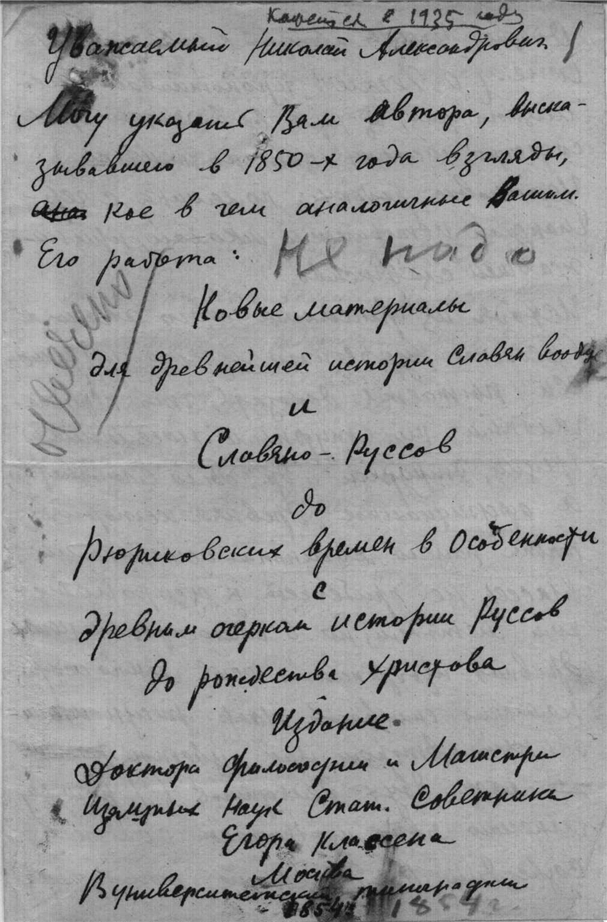 Кажется в 1935 году
Уважаемый Николай Александрович!
Могу указать Вам автора, выска-
зывавшего в 1850-х года взгляды,
кое в чем аналогичные Вашим.
Его работа: Не надо
отвечено
Новые материалы
для древнейшей истории Славян вообще
и
Славяно-Руссов
до
Рюриковских времен в Особенности
с
древним очерком истории Руссов
до рождества Христова
Издание
Доктора философии и Магистра
Изящных Наук Стат. Советника
Егора Классена
Москва
В университетской типографии
1854 1854 г.